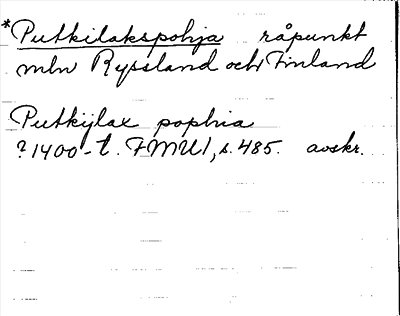 *Putkilakspohja råpunkt
mln Ryssland och Finland
Putkÿlax pophia
?1400-t. FMU 1, s. 485. avskr.